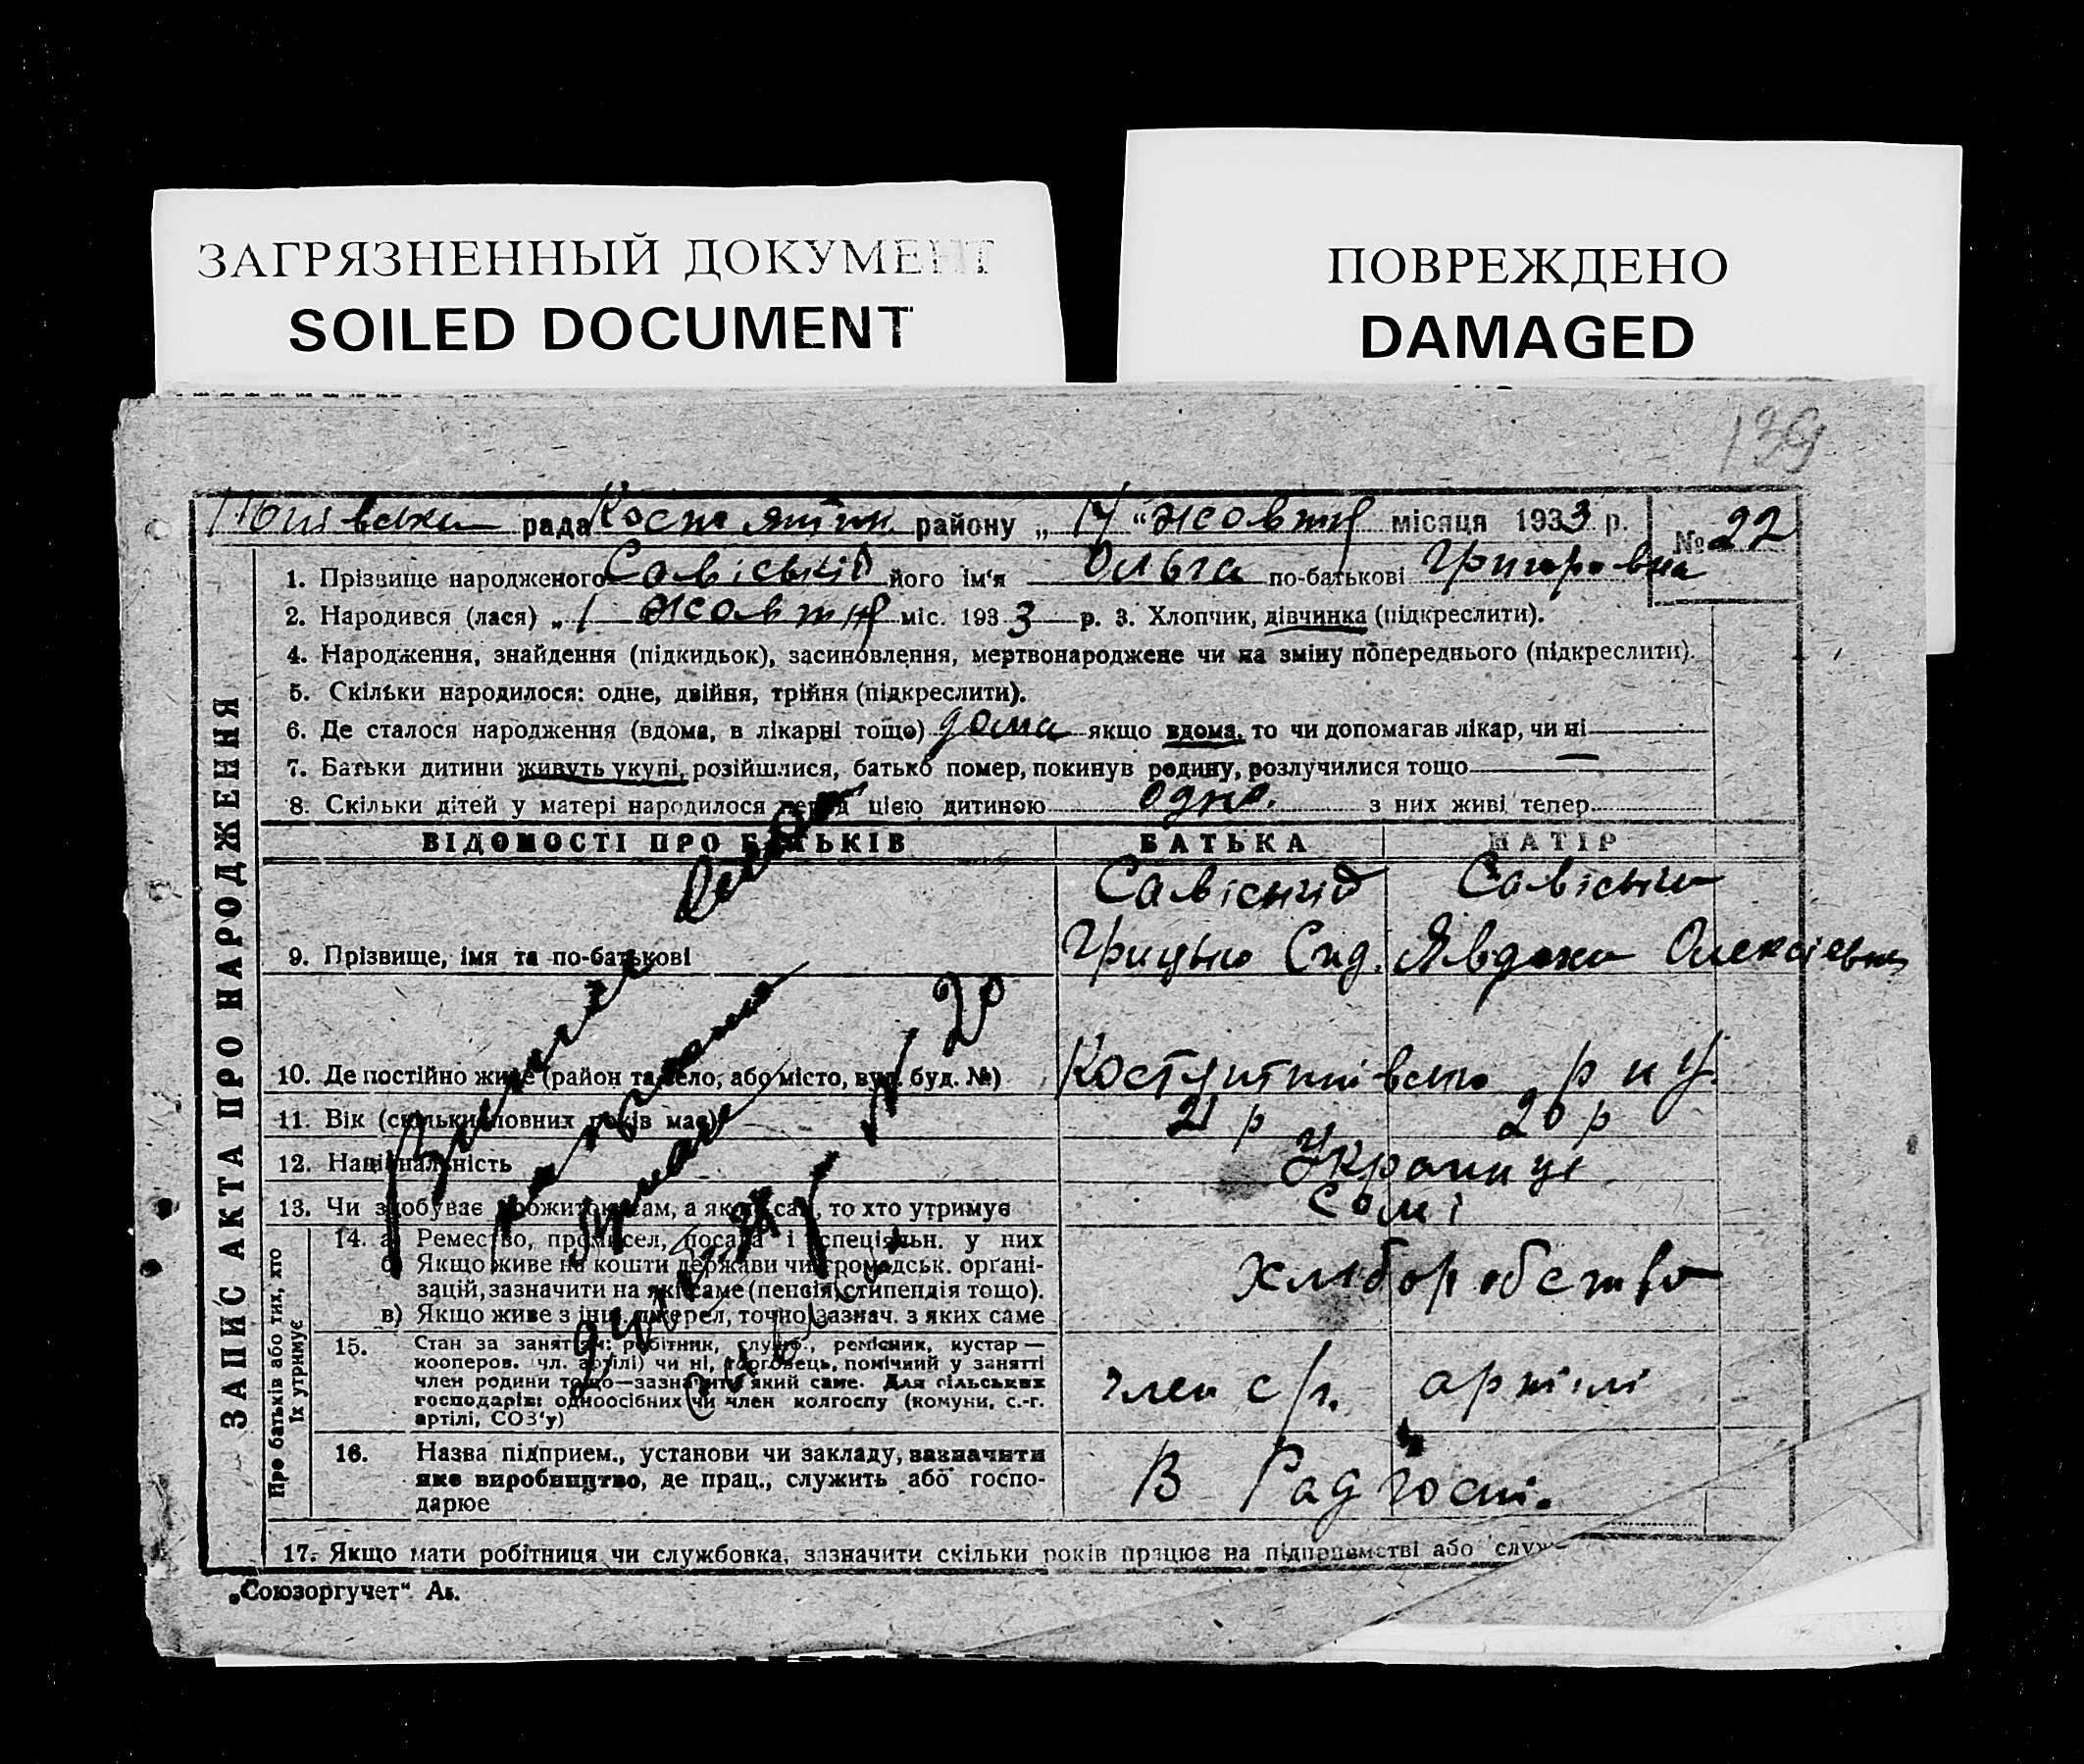 ЗАГРЯЗНЕННЫЙ ДОКУМЕНТ
SOILED DOCUMENT
ПОВРЕЖДЕНО
DAMAGED
139
рада районy „ 14 “ жовтня місяця 1933 р. № 22
1. Прізвище народженого Савіський його ім'я Ольга по-батькові Григоровна
2. Народився (лася) „ 1 жовтня міс. 1933 р. 3. Хлопчик, дівчинка (підкреслити).
4. Народження, знайдення (підкидьок), засиновлення, мертвонароджене чи на зміну попереднього (підкреслити).
5. Скільки народилося: одне, двійня, трійня (підкреслити).
6. Де сталося народження (вдома, в лікарні тощо) дома якщо вдома, то чи допомагав лікар, чи ні
7. Батьки дитини живуть укупі, розійшлися, батько помер, покинув родину, розлучилися тощо
8. Скільки дітей у матері народилося перед цією дитиною одно. з них живі тепер
ВІДОМОСТІ ПРО БАТЬКІВ БАТЬКА МАТІР
Савіський Савіська
9. Прізвище, імя та по-батькові Грицько Сид. Явдоха Олексіевна
10. Де постійно живе (район та село, або місто, вул. буд. №)
11. Вік (скільки повних років має) 21 р 20 р
12. Національність Украинці
13. Чи здобуває прожиток сам, а як не сам, то хто утримує самі
14. а) Ремество, промисел, посада і спеціяльн. у них
б) Якщо живе на кошти держави чи громадськ. органі-
зацій, зазначити на які саме (пенсія, стипендія тощо).
в) Якщо живе з інш. джерел, точно зазнач. з яких саме
хліборобство
15. Стан за заняттям: робітник, службов., ремісник, кустар —
кооперов. чл. артілі) чи ні, торговець, помічний у занятті
член родини тощо—зазначити який саме. Для сільських
господарів: одноосібних чи член колгоспу (комуни, с.-г.
артілі, СОЗ'у)
член с/г. артілі
16. Назва підприєм., установи чи закладу, зазначити
яке виробництво, де прац., служить або госпо-
дарює
В Радгоспі.
17. Якщо мати робітниця чи службовка, зазначити скільки років працює на підприємстві або
Про батьків або тих, хто
їх утримує
ЗАПИС АКТА ПРО НАРОДЖЕННЯ
„Союзоргучет“